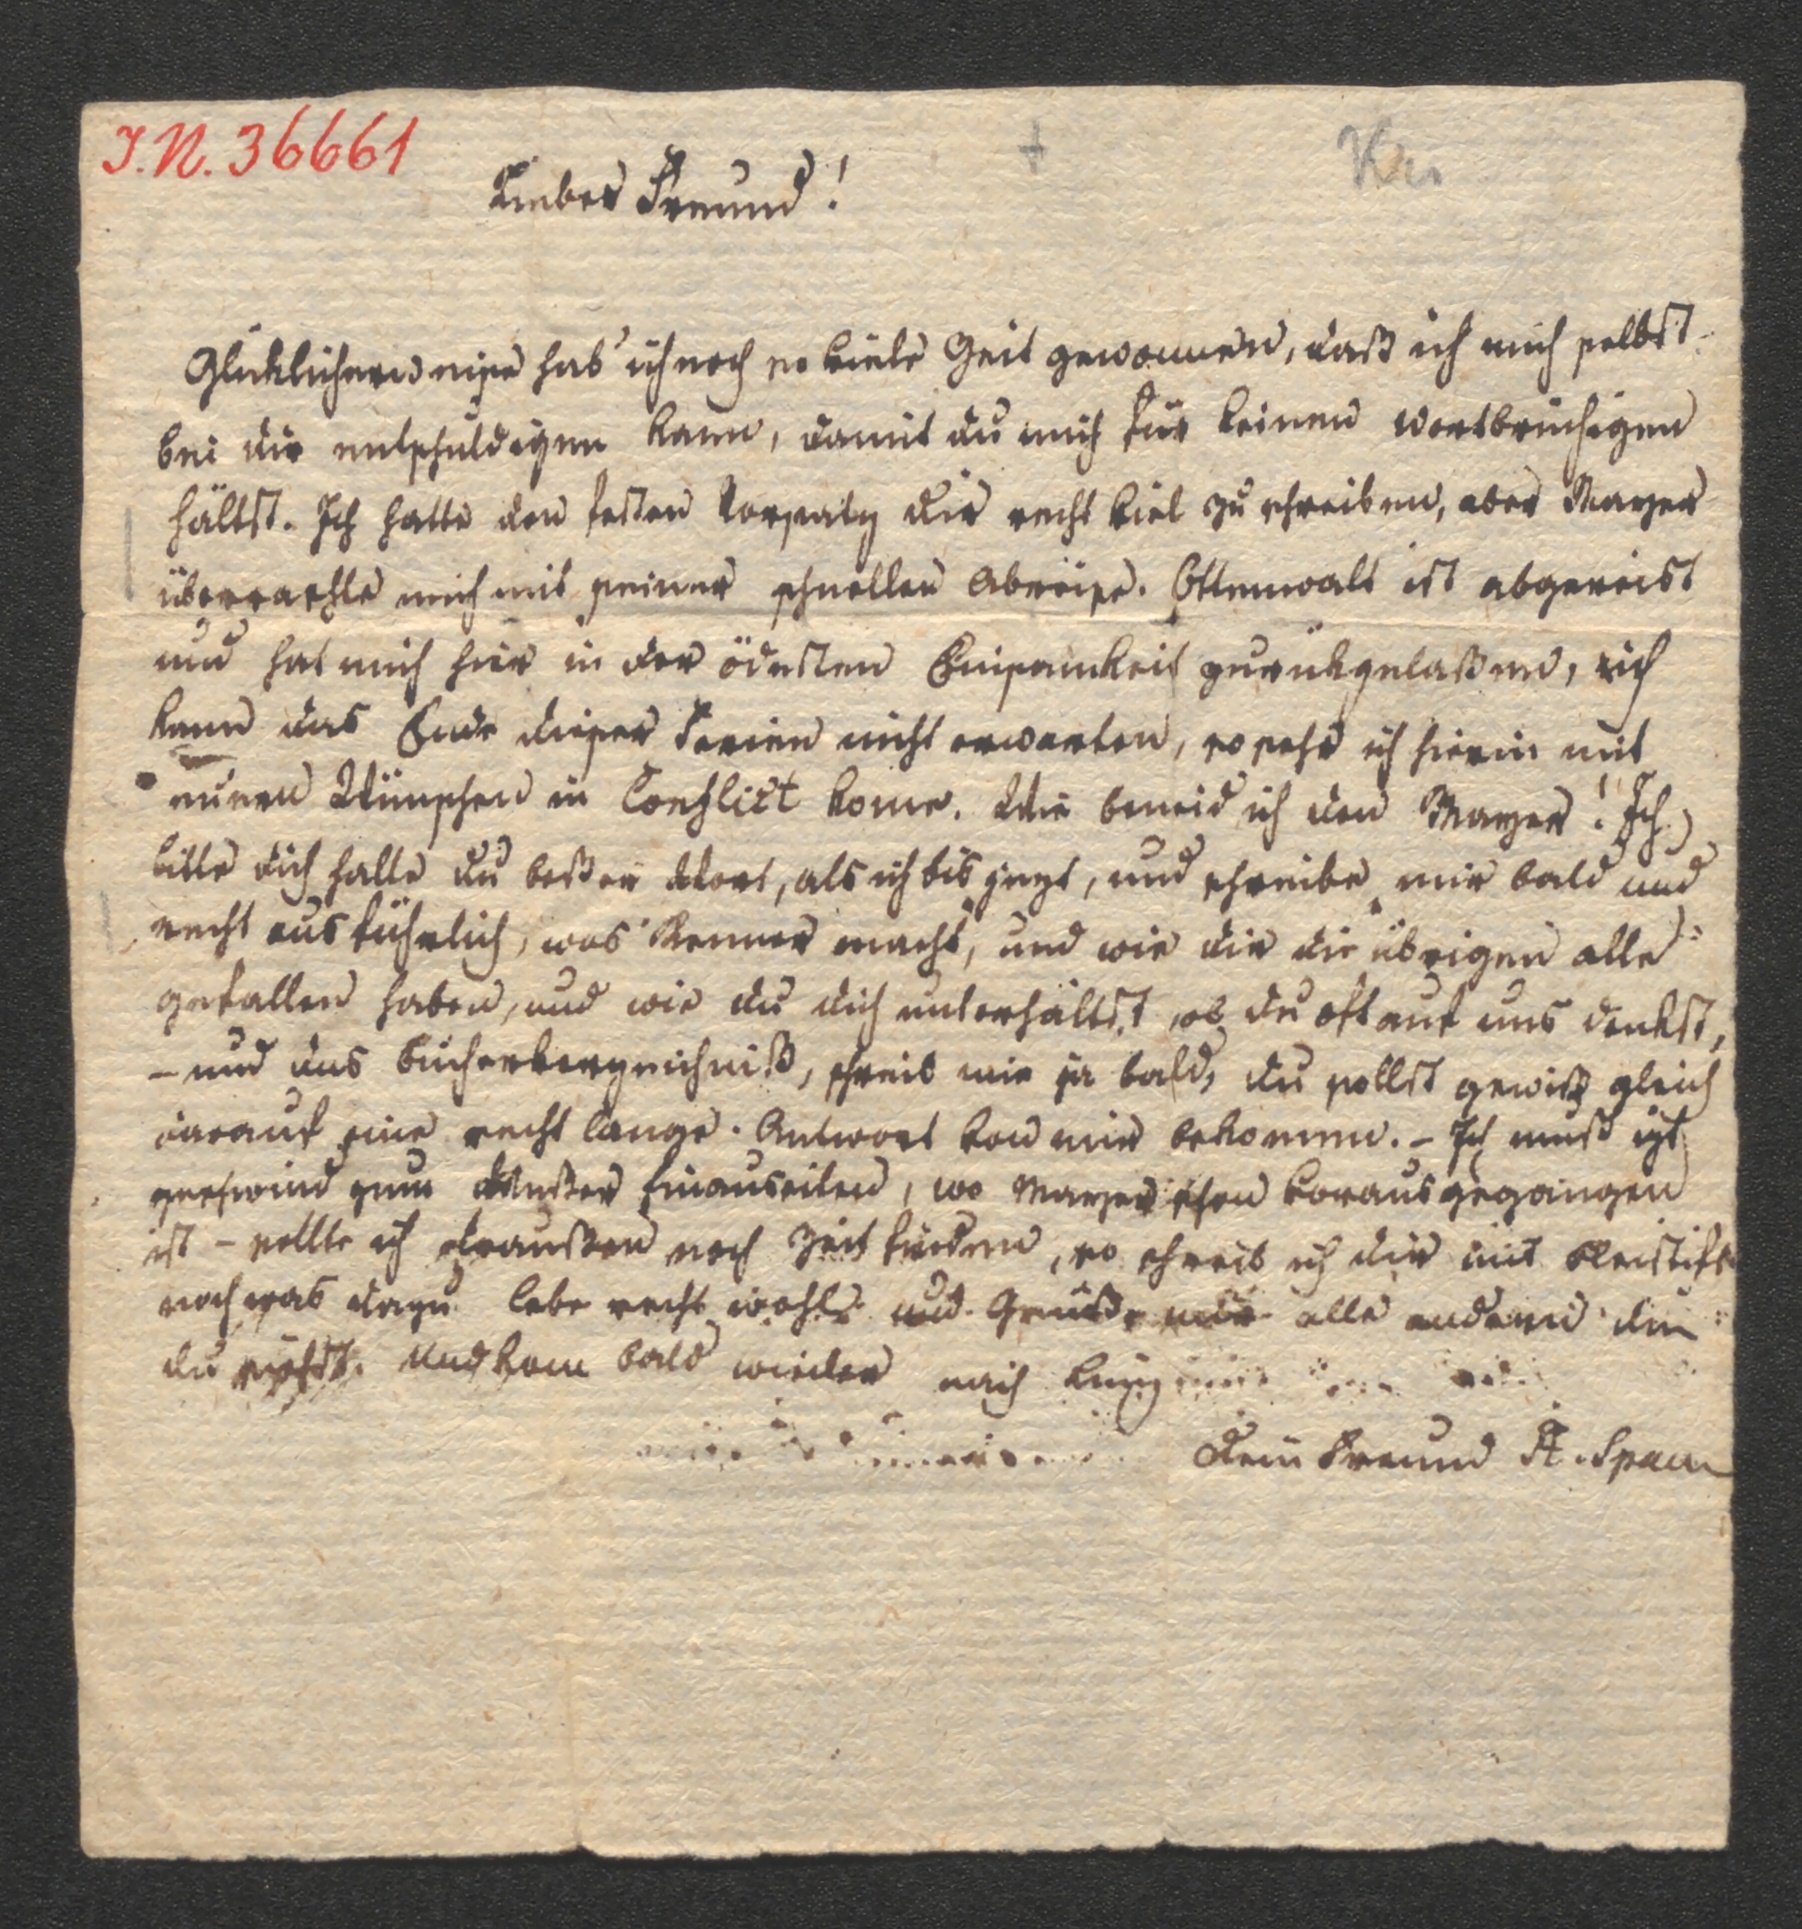 I.N. 36661
Lieber Freund!
Glücklicherweise hab' ich noch so viele Zeit gewonnen, daß ich mich selbst
bei dir entschuldigen kann, damit du mich für keinen wortbrüchigen
hältst. Ich hatte den festen Vorsatz dir recht viel zu schreiben, aber Mayer
überraschte mich mit seiner schnellen Abreise. Ottenwalt ist abgereist
und hat mich hier in der ödesten Einsamkeit zurückgelaßen, ich
kann das Ende dieser Ferien nicht erwarten, so sehr ich hierin mit
euren Wünschen in Conflict kome. Wie beneid ich den Mayer! Ich
bitte dich halte du beßer Wort, als ich bis jezt, und schreibe mir bald und
recht ausführlich, was Kenner macht, und wie dir die übrigen alle
gefallen haben, und wie du dich unterhältst, ob du oft auf uns denkst,
– und das Bücherverzeichniß, schreib mir ja bald, du sollst gewiß gleich
darauf eine recht lange Antwort von mir bekommen. – Ich muß izt
geschwind zum hinauseilen, wo Mayer schon vorausgegangen
ist – sollte ich draußen noch Zeit finden, so schreib ich dir mit Bleistift
noch was dazu lebe recht wohl und Grüße mir alle andern die
du siehst. Und kom bald wieder nach Linz
Dein Freund A. Spaun